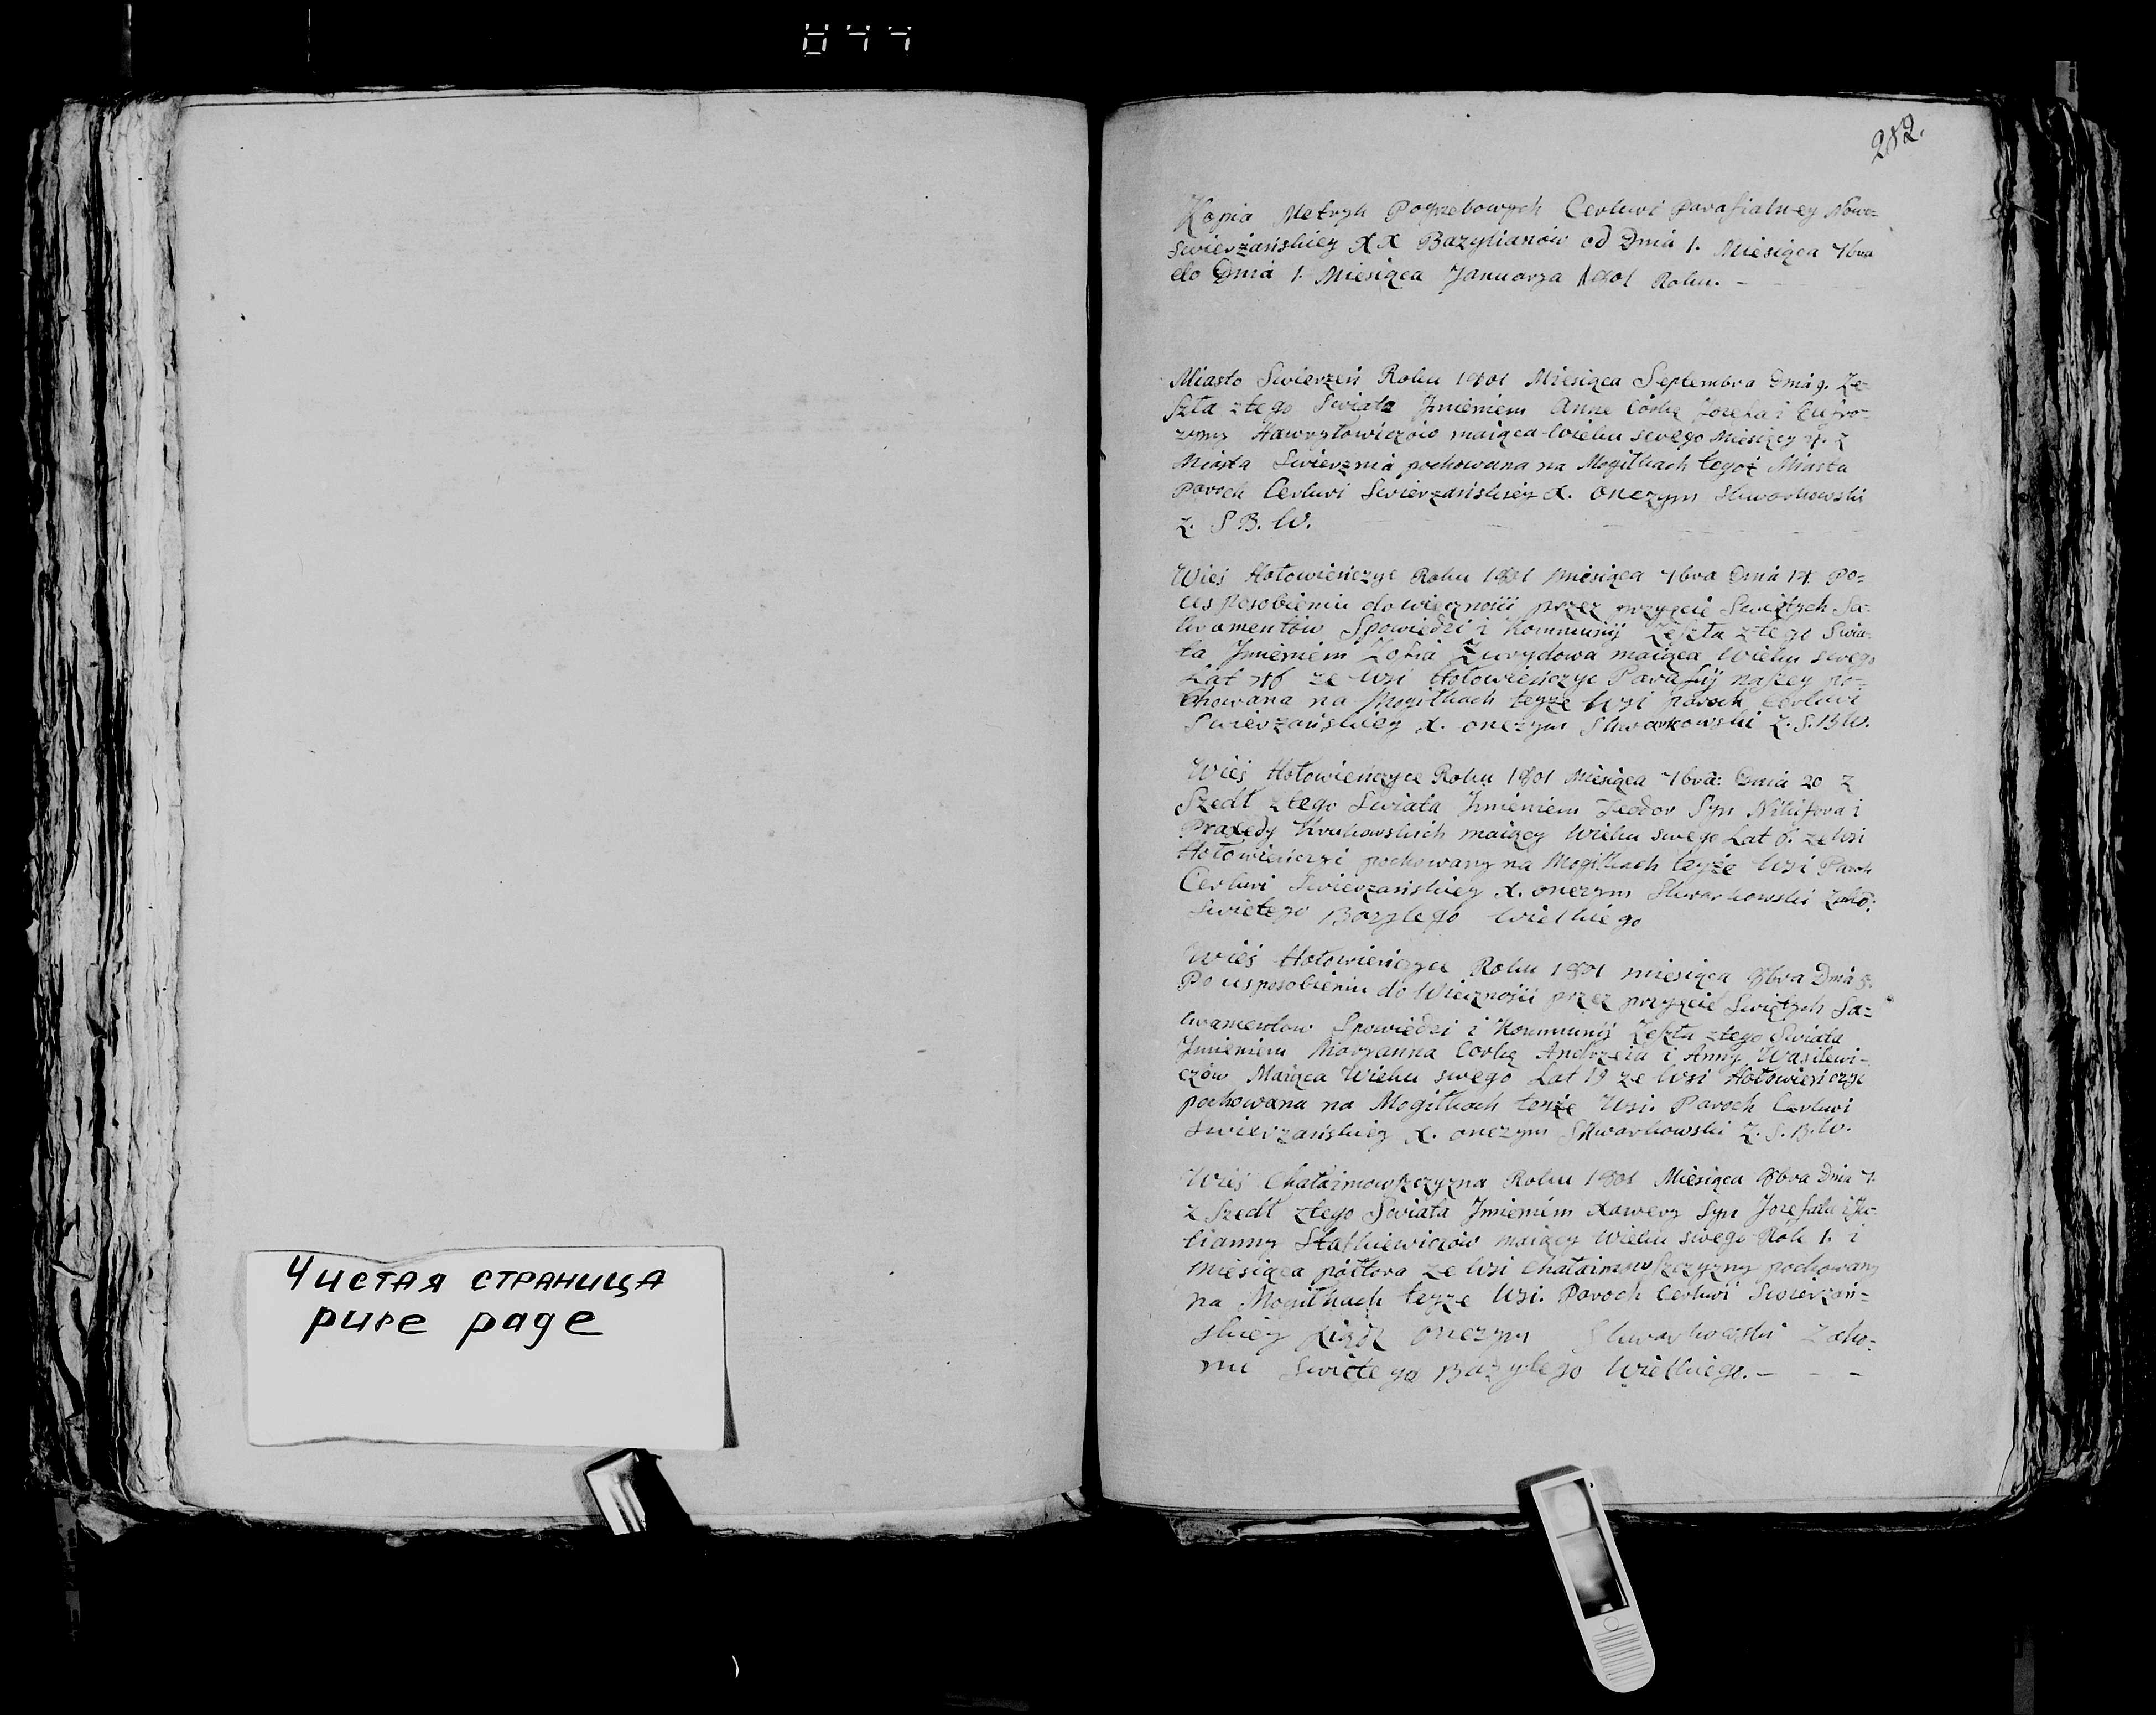 282.
Kopia Metryk Pogrzebowych Cerkwi Parafialney Nowo=
Swierżańskiey XX Bazylianów od Dnia 1. Miesiąca 7bra
do Dnia 1. Miesiąca Januarya 1801 Roku. -
Miasto Swierzeń Roku 1801 Miesiąca Septembra Dnia 9. Ze-
szła ztego Swiata Jmieniem Anne Córkę Jozefa i Eufro=
zyny Hawryłowiczów maiąca Wieku swego Miesięcy z
Miasta Swierznia pochowana na Mogiłkach tegoż Miasta
Paroch Cerkwi Swierzańskiey X. Onezym Skwarkowski
Z. S B. W.
Wieś Hołowieńczyc Roku 1801 Miesiąca 7bra Dnia 14. Po=
usposobieniu do wieczności przez przyęcie Swiętych Sa=
kramentów Spowiedzi i Kommunij Zeszła ztego Swia=
ta Jmieniem Zofia maiąca Wieku swego
Lat ze Wsi Hołowieńczyc Parafij naszey po=
chowana na Mogiłkach teyże Wsi Paroch Cerkwi
Swierzańskiey X. Onezym Skwarkowski Z. S. B W.
Wieś Hołowieńczyce Roku 1801 Miesiąca 7bra: Dnia 20 Z
Szedł ztego Swiata Jmieniem Teodor Syn Nikifora i
Praxedy Krukowskich maiący Wieku swego Lat 6. ze Wsi
Hołowieńczyc pochowany na Mogiłkach teyże Wsi Paroch
Cerkwi Swierzańskiey X. Onezym Skwarkowski Zako:
Swiętego Bazylego Wielkiego
Wieś Hołowieńczyce Roku 1801 miesiąca 8bra Dnia 5.
Po usposobieniu do Wieczności przez przyęcie Swiętych Sa=
kramentow Spowiedzi i Kommunij Zeszła ztego Swiata
Jmieniem Maryanna Corkę Andrzeia i Anny Wasilewi=
czów Maiąca Wieku swego Lat 19 ze Wsi Hołowieńczyc
pochowana na Mogiłkach teyże Wsi. Paroch Cerkwi
Swierzańskiey X. Onezym Skwarkowski Z. S. B. W.
Wieś Chataimowszczyzna Roku 1801 Miesiąca 8bra Dnia 7.
z Szedł ztego Swiata Jmieniem Xawery Syn Jozefata i Ju=
lianny Staśkiewiczów maiący Wieku swego Rok 1. i
miesiąca półtora ze Wsi Chataimowszczyzny pochowany
na Mogiłkach teyże Wsi. Paroch Cerkwi Swierzań=
skiey Xiądz Onezym Skwarkowski Zako=
nu Swiętego Bazylego Wielkiego. - - -
Чистая страница
pure page